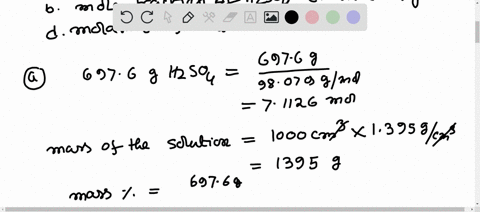 b. mol
d. mola
(a) 697.6 g H2SO4 = 697.6 g / 98.079 g/mol
= 7.1126 mol
mass of the solution = 1000 cm3 × 1.395 g/cm3
= 1395 g
mass %. = 697.6g